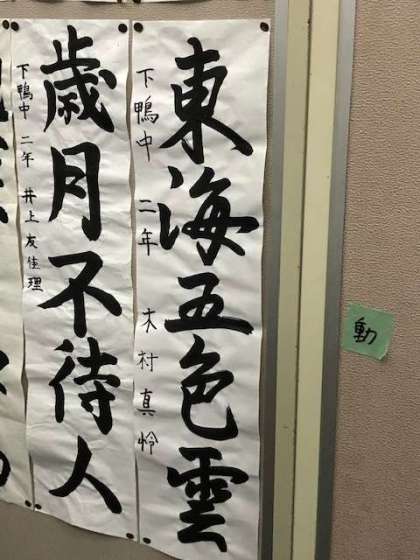 動
東海五色雲
下鴨中 二年 木村真怜
歳月不待人
下鴨中 二年 井上友佳理